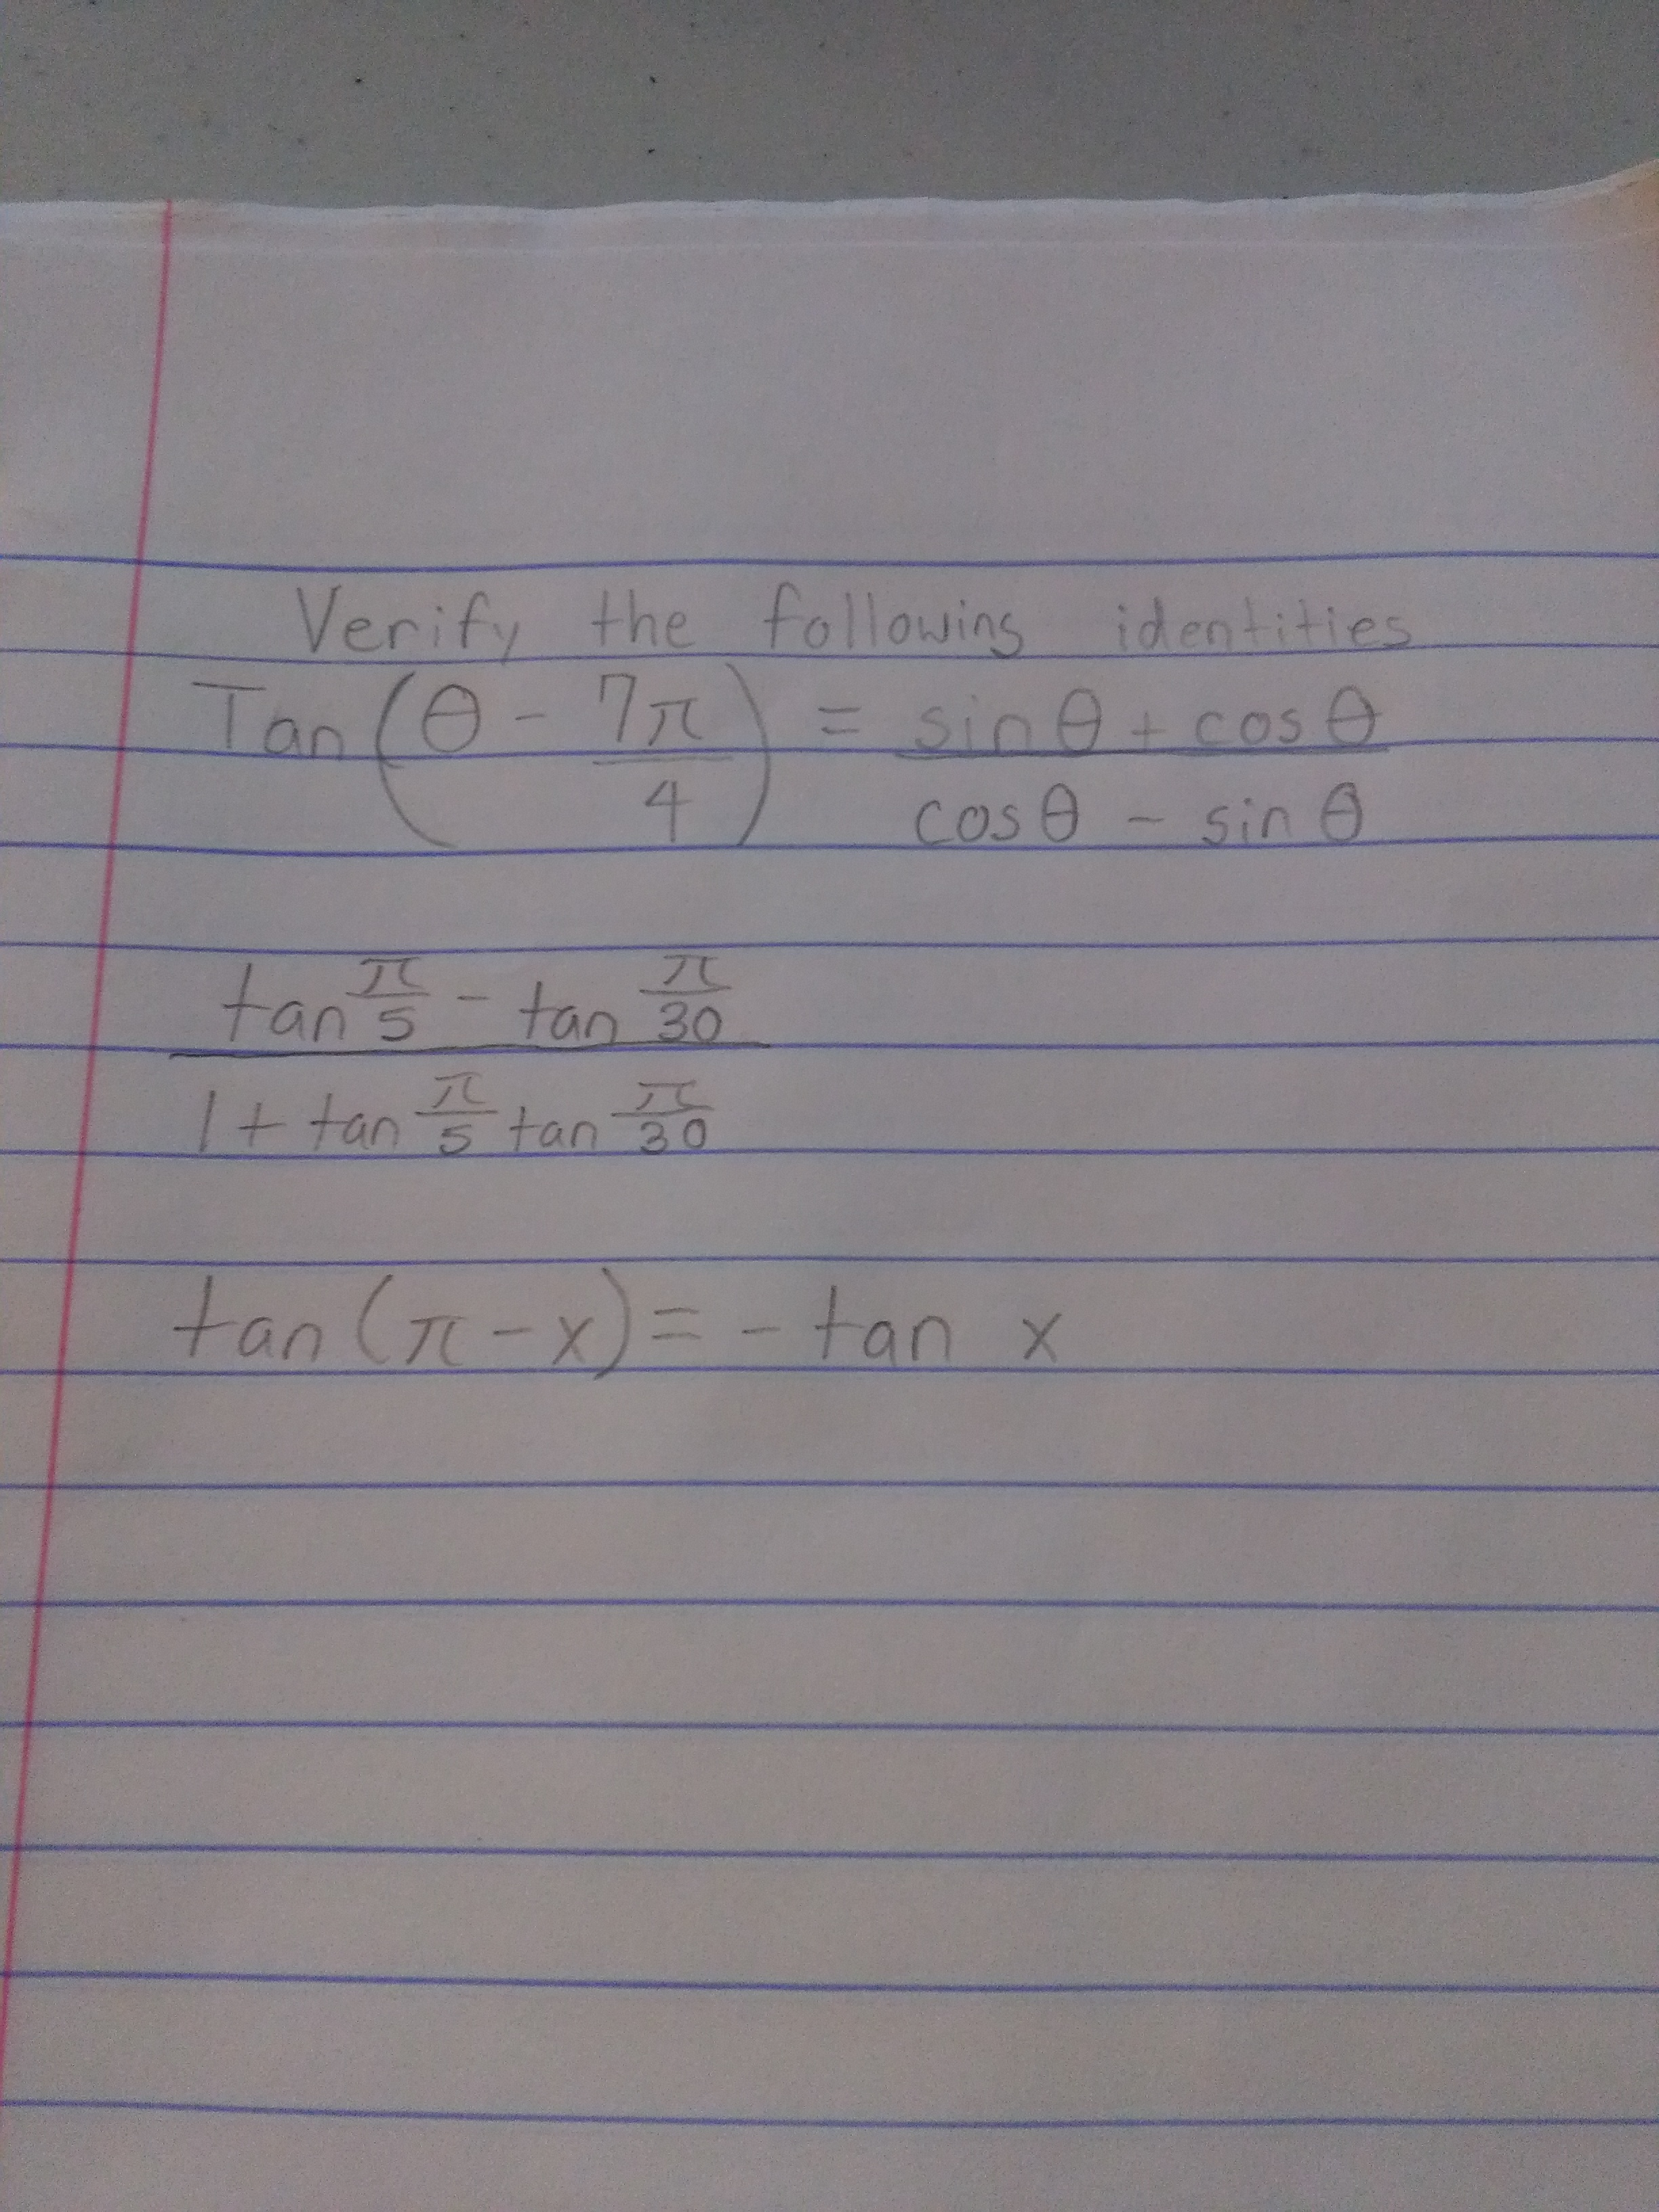 Verify the following identities
Tan(θ - 7π/4) = sinθ + cosθ / cosθ - sinθ
tan π/5 - tan π/30
1 + tan π/5 tan π/30
tan(π - x) = - tan x